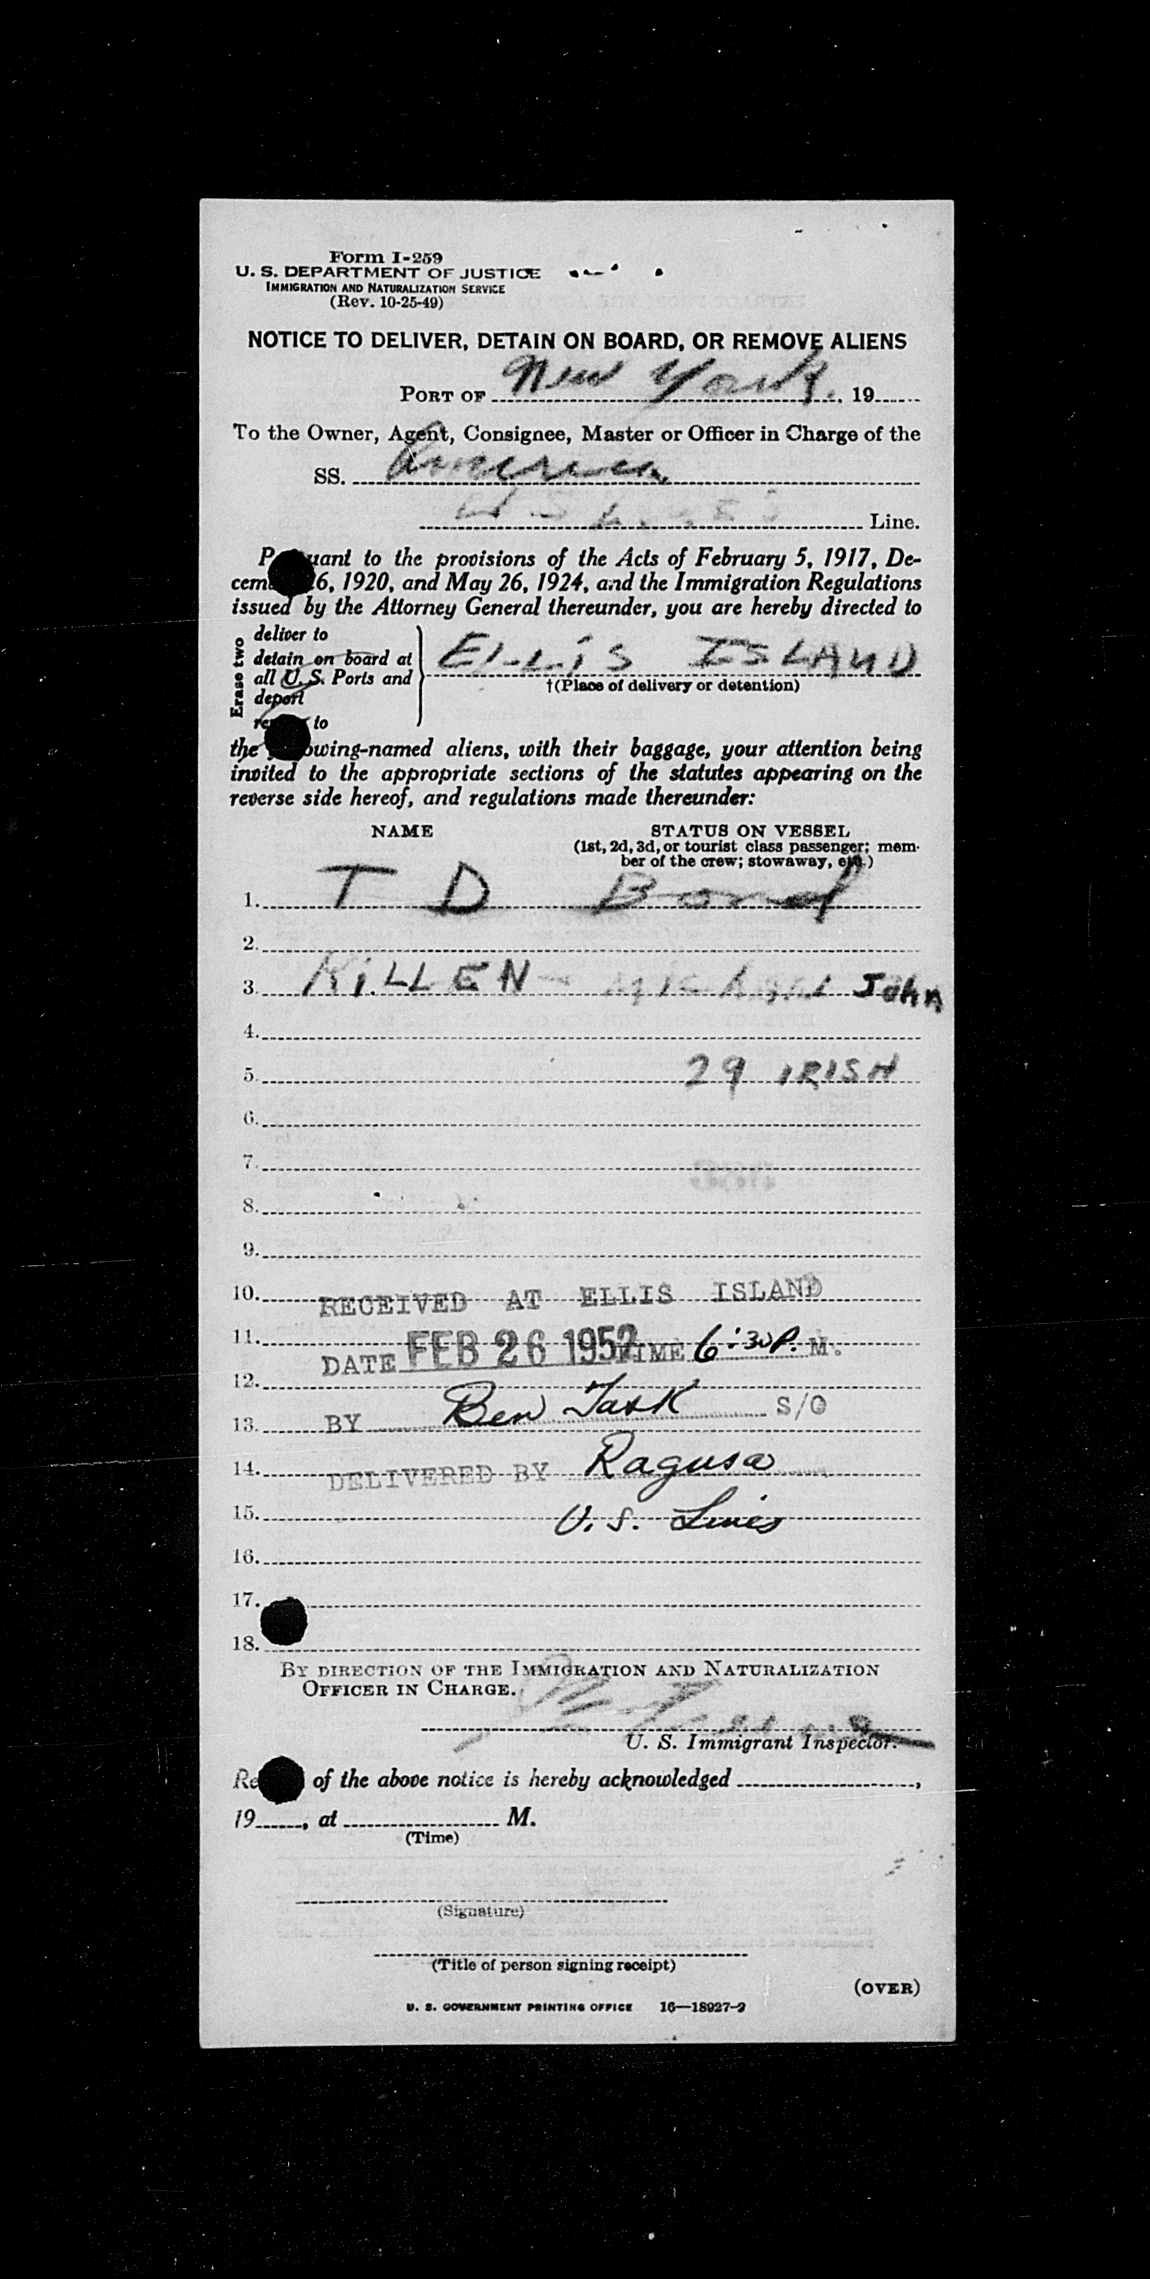 Form I-259
U. S. DEPARTMENT OF JUSTICE
IMMIGRATION AND NATURALIZATION SERVICE
(Rev. 10-25-49)
NOTICE TO DELIVER, DETAIN ON BOARD, OR REMOVE ALIENS
PORT OF New York, 19
To the Owner, Agent, Consignee, Master or Officer in Charge of the
SS. America
Line.
uant to the provisions of the Acts of February 5, 1917, De-
cem 6, 1920, and May 26, 1924, and the Immigration Regulations
issued by the Attorney General thereunder, you are hereby directed to
Erase two
deliver to
detain on board at
all U.S. Ports and
deport
to
ELLIS ISLAND
†(Place of delivery or detention)
the owing-named aliens, with their baggage, your attention being
invited to the appropriate sections of the statutes appearing on the
reverse side hereof, and regulations made thereunder:
NAME STATUS ON VESSEL
(1st, 2d, 3d, or tourist class passenger; mem-
ber of the crew; stowaway, etc.)
1. T D Bond
2.
3. KILLEN - Michael John
4.
5. 29 IRISH
6.
7.
8.
9.
10. RECEIVED AT ELLIS ISLAND
11. DATE FEB 26 1952 TIME 6:30 P. M.
12.
13. BY Ben Task S/O
14. DELIVERED BY Ragusa
15. U. S. Lines
16.
17.
18.
BY DIRECTION OF THE IMMIGRATION AND NATURALIZATION
OFFICER IN CHARGE.
U. S. Immigrant Inspector.
Re of the above notice is hereby acknowledged ,
19 , at M.
(Time)
(Signature)
(Title of person signing receipt)
(OVER)
U. S. GOVERNMENT PRINTING OFFICE 16—18927-2